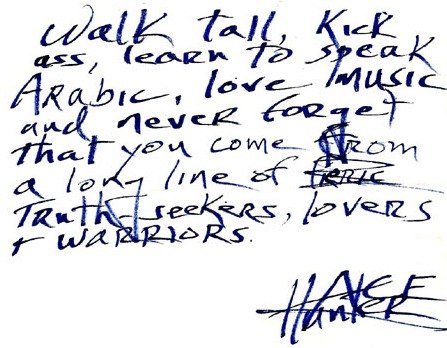 Walk tall, Kick
ass, learn to speak
Arabic, love music
and never forget
that you come from
a long line of
Truth seekers, lovers
+ WARRIORS.
Hunter